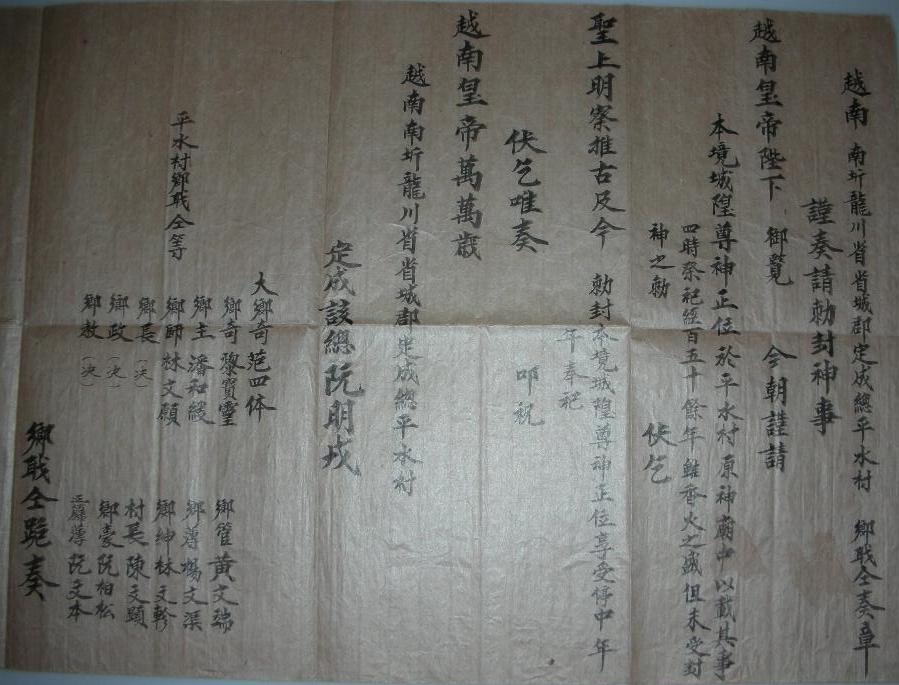 越南 南圻龍川省省城郡定成總平水村 鄉職仝奏章
謹奏請勅封神事
越南皇帝陛下 御覽 今朝謹請
本境城隍尊神正位於平水村原神廟中以戴其事
四時祭祀經百五十餘年 雖香火之盛但未受封
神之勅 伏乞
聖上明察推古及今 勅封本境城隍尊神正位享受停中年
年奉祀
伏乞唯奏 叩祝
越南皇帝萬萬歲
越南南圻龍川省省城郡定成總平水村
定成該總阮明戍
平水村鄉職仝等
大鄉奇范四体
鄉奇黎寶靈
鄉主潘和綏
鄉師林文願
鄉長(决)
鄉政(决)
鄉教(决)
鄉管黃文瑞
鄉薄楊文渠
鄉紳林文軫
村長陳文顕
鄉豪阮柏松
正薄阮文本
鄉職仝跪奏